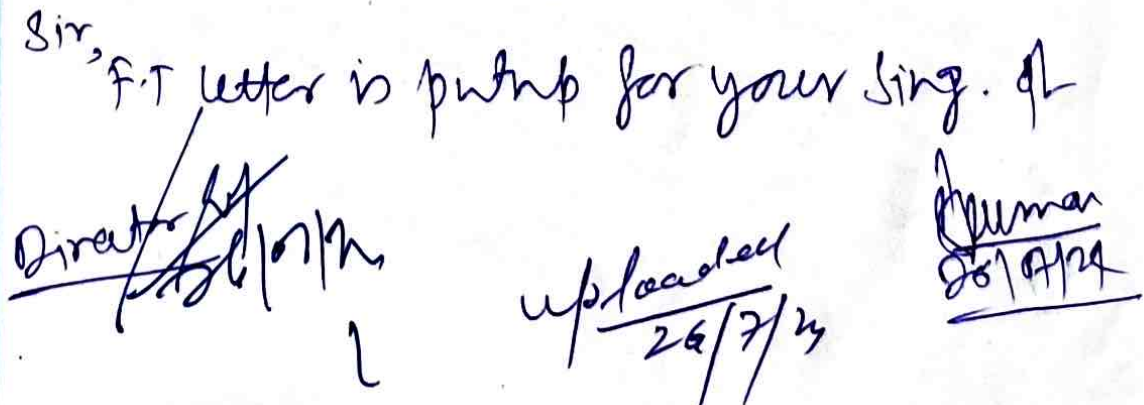 Sir,
F.T letter is putup for your Sing. pl
Director
uploaded
26/7/24
Kumar
26/07/24